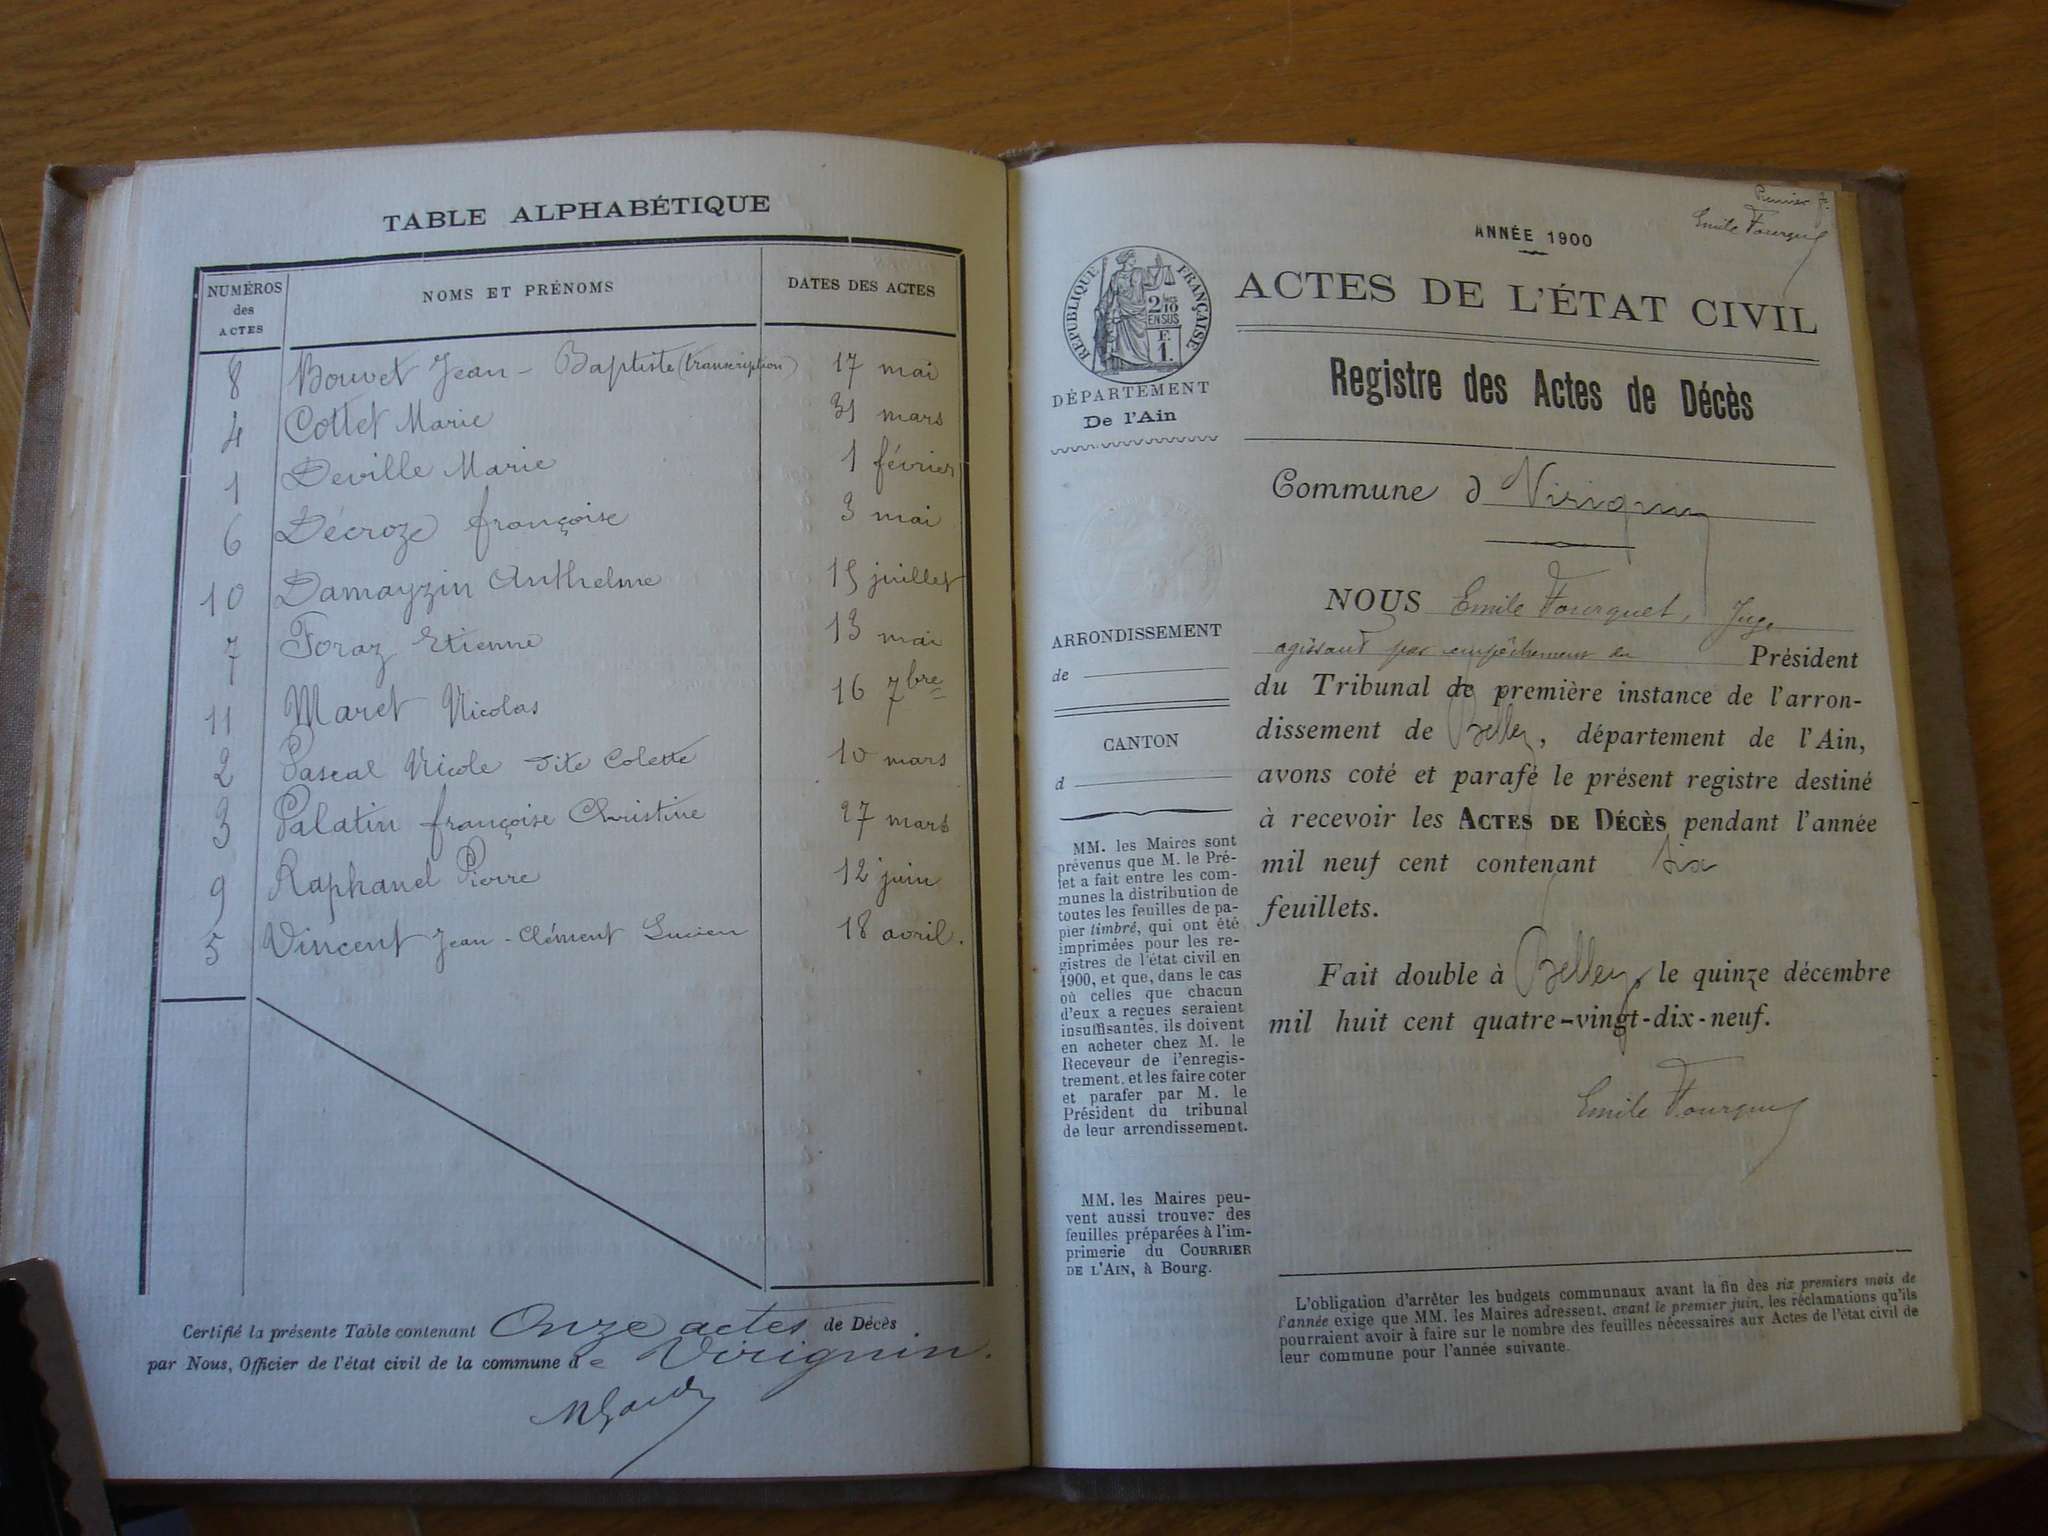 TABLE ALPHABÉTIQUE
NUMÉROS des ACTES NOMS ET PRÉNOMS DATES DES ACTES
8 Bouvet Jean-Baptiste (transcription) 17 mai
4 Cottet Marie 31 mars
1 Deville Marie 1 février
6 Décroze françoise 3 mai
10 Damayzin Anthelme 15 juillet
7 Foraz Etienne 13 mai
11 Maret Nicolas 16 7bre
2 Pascal Nicole dite Colette 10 mars
3 Palatin françoise Christine 27 mars
9 Raphanel Pierre 12 juin
5 Vincent Jean-Clément Lucien 18 avril.
Certifié la présente Table contenant Onze actes de Décès
par Nous, Officier de l'état civil de la commune de Virignin.
Premier f.
Emile Fourquet
ANNÉE 1900
ACTES DE L'ÉTAT CIVIL
RÉPUBLIQUE FRANÇAISE
2/10
EN SUS
F.
1.
DÉPARTEMENT
De l'Ain
Registre des Actes de Décès
Commune d Virignin
ARRONDISSEMENT
de
CANTON
d
MM. les Maires sont
prévenus que M. le Pré-
fet a fait entre les com-
munes la distribution de
toutes les feuilles de pa-
pier timbré, qui ont été
imprimées pour les re-
gistres de l'état civil en
1900, et que, dans le cas
où celles que chacun
d'eux a reçues seraient
insuffisantes, ils doivent
en acheter chez M. le
Receveur de l'enregis-
trement, et les faire coter
et parafer par M. le
Président du tribunal
de leur arrondissement.
MM. les Maires peu-
vent aussi trouver des
feuilles préparées à l'im-
primerie du COURRIER
DE L'AIN, à Bourg.
NOUS Emile Fourquet, Juge
agissant par empêchement du Président
du Tribunal de première instance de l'arron-
dissement de Belley, département de l'Ain,
avons coté et parafé le présent registre destiné
à recevoir les ACTES DE DÉCÈS pendant l'année
mil neuf cent contenant six
feuillets.
Fait double à Belley, le quinze décembre
mil huit cent quatre-vingt-dix-neuf.
Emile Fourquet
L'obligation d'arrêter les budgets communaux avant la fin des six premiers mois de
l'année exige que MM. les Maires adressent, avant le premier juin, les réclamations qu'ils
pourraient avoir à faire sur le nombre des feuilles nécessaires aux Actes de l'état civil de
leur commune pour l'année suivante.